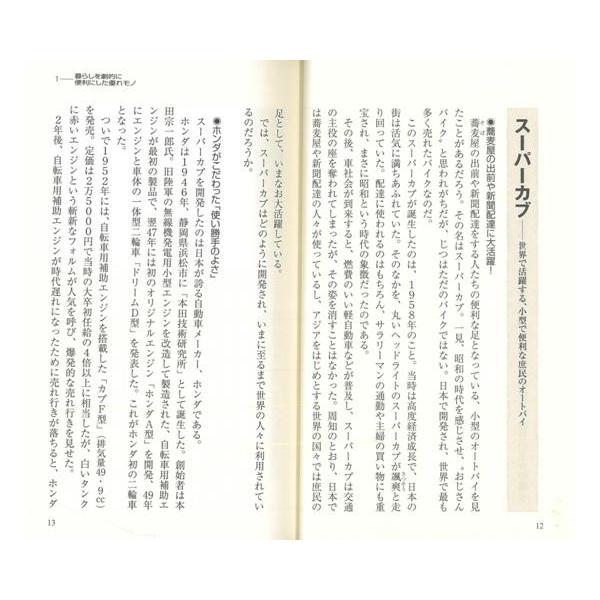 スーパーカブ──世界で活躍する、小型で便利な庶民のオートバイ
●蕎麦屋の出前や新聞配達に大活躍!
蕎麦屋の出前や新聞配達をする人たちの便利な足となっている、小型のオートバイを見
たことがあるだろう。その名はスーパーカブ。一見、昭和の時代を感じさせ、〝おじさん
バイク〟と思われがちだが、じつはただのバイクではない。日本で開発され、世界で最も
多く売れたバイクなのだ。
このスーパーカブが誕生したのは、1958年のこと。当時は高度経済成長で、日本の
街は活気に満ちあふれていた。そのなかを、丸いヘッドライトのスーパーカブが颯爽と走
り回っていた。配達に使われるのはもちろん、サラリーマンの通勤や主婦の買い物にも重
宝され、まさに昭和という時代の象徴だったのである。
その後、車社会が到来すると、燃費のいい軽自動車などが普及し、スーパーカブは交通
の主役の座を奪われてしまったが、その姿を消すことはなかった。周知のとおり、日本で
は蕎麦屋や新聞配達の人々が使っているし、アジアをはじめとする世界の国々では庶民の
12
足として、いまなお大活躍している。
では、スーパーカブはどのように開発され、いまに至るまで世界の人々に利用されてい
るのだろうか。
●ホンダがこだわった「使い勝手のよさ」
スーパーカブを開発したのは日本が誇る自動車メーカー、ホンダである。
ホンダは1946年、静岡県浜松市に「本田技術研究所」として誕生した。創始者は本
田宗一郎氏。旧陸軍の無線機発電用小型エンジンを改造して製造された、自転車用補助エ
ンジンが最初の製品で、翌47年には初のオリジナルエンジン「ホンダA型」を開発、49年
にエンジンと車体の一体型二輪車「ドリームD型」を発表した。これがホンダ初の二輪車
となった。
ついで1952年には、自転車用補助エンジンを搭載した「カブF型」(排気量49・9cc)
を発売。定価は2万5000円で当時の大卒初任給の4倍以上に相当したが、白いタンク
に赤いエンジンという斬新なフォルムが人気を呼び、爆発的な売れ行きを見せた。
2年後、自転車用補助エンジンが時代遅れになったために売れ行きが落ちると、ホンダ
1──暮らしを劇的に
便利にした優れモノ
13